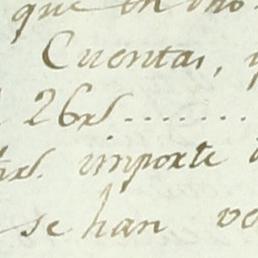 que en
Cuentas,
26rs........
rs. importe
se han